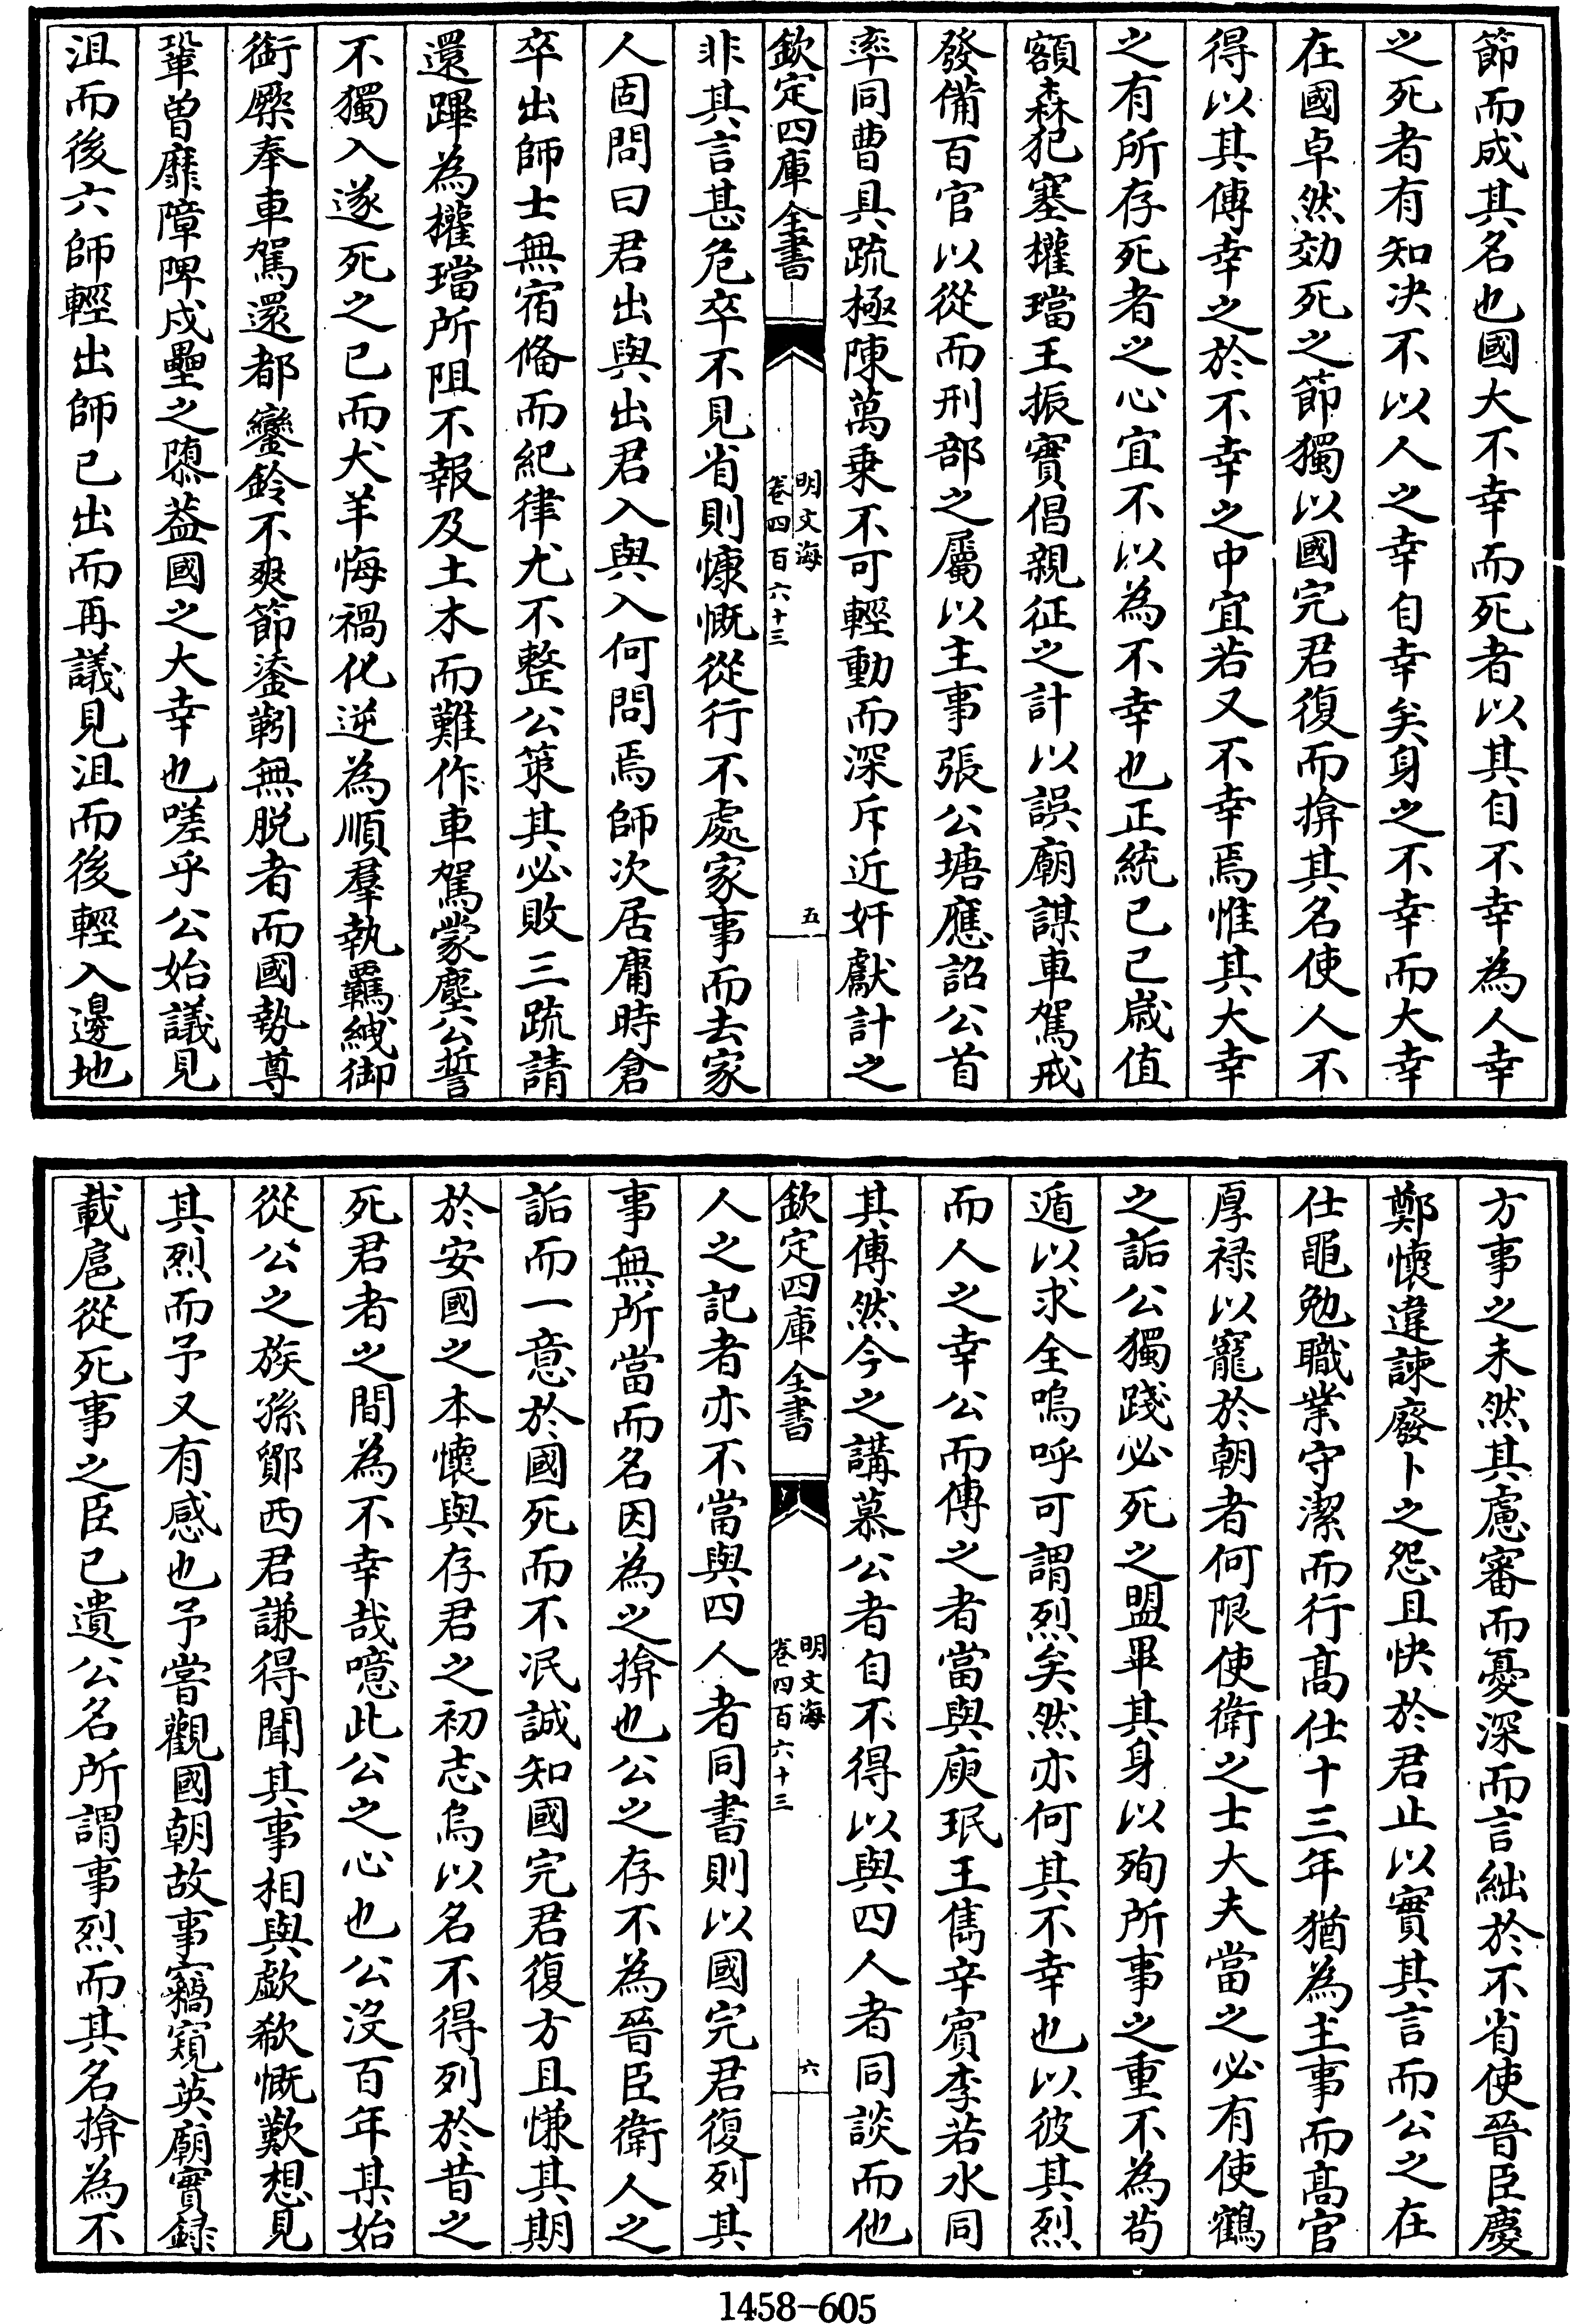 節而成其名也國大不幸而死者以其自不幸為人幸
之死者有知决不以人之幸自幸矣身之不幸而大幸
在國卓然効死之節獨以國完君復而揜其名使人不
得以其傳幸之於不幸之中宜若又不幸焉惟其大幸
之有所存死者之心宜不以為不幸也正統己巳嵗值
額森犯塞權璫王振實倡親征之計以誤廟謀車駕戒
發備百官以從而刑部之屬以主事張公塘應詔公首
率同曹具疏極陳萬乗不可輕動而深斥近奸獻計之
欽定四庫全書
明文海
卷四百六十三
五
非其言甚危卒不見省則慷慨從行不處家事而去家
人固問曰君出與出君入與入何問焉師次居庸時倉
卒出師士無宿備而紀律尤不整公䇿其必敗三疏請
還蹕為權璫所阻不報及土木而難作車駕蒙塵公誓
不獨入遂死之已而犬羊悔禍化逆為順羣執羈絏御
銜橜奉車駕還都鑾鈴不爽節鋈靷無脱者而國勢尊
鞏曽靡障陴戍壘之隳葢國之大幸也嗟乎公始議見
沮而後六師輕出師已出而再議見沮而後輕入邊地
方事之未然其慮審而憂深而言絀於不省使晉臣慶
鄭懷違諫廢卜之怨且快於君止以實其言而公之在
仕黽勉職業守潔而行髙仕十三年猶為主事而髙官
厚禄以寵於朝者何限使衛之士大夫當之必有使鶴
之詬公獨踐必死之盟畢其身以殉所事之重不為茍
遁以求全嗚呼可謂烈矣然亦何其不幸也以彼其烈
而人之幸公而傳之者當與庾珉王雋辛賓李若水同
其傳然今之講慕公者自不得以與四人者同談而他
欽定四庫全書
明文海
卷四百六十三
六
人之記者亦不當與四人者同書則以國完君復列其
事無所當而名因為之揜也公之存不為晉臣衛人之
詬而一意於國死而不冺誠知國完君復方且慊其期
於安國之本懷與存君之初志烏以名不得列於昔之
死君者之間為不幸哉噫此公之心也公沒百年某始
從公之族孫鄖西君謙得聞其事相與歔欷慨歎想見
其烈而予又有感也予嘗觀國朝故事竊窺英廟實録
載扈從死事之臣已遺公名所謂事烈而其名揜為不
1458-605